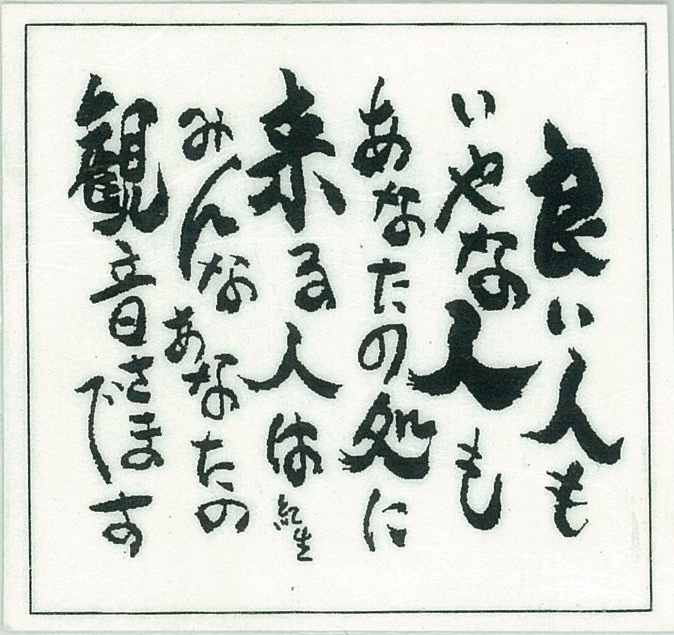 良い人も
いやな人も
あなたの処に
来る人は
みんなあなたの
観音さまです
紀生